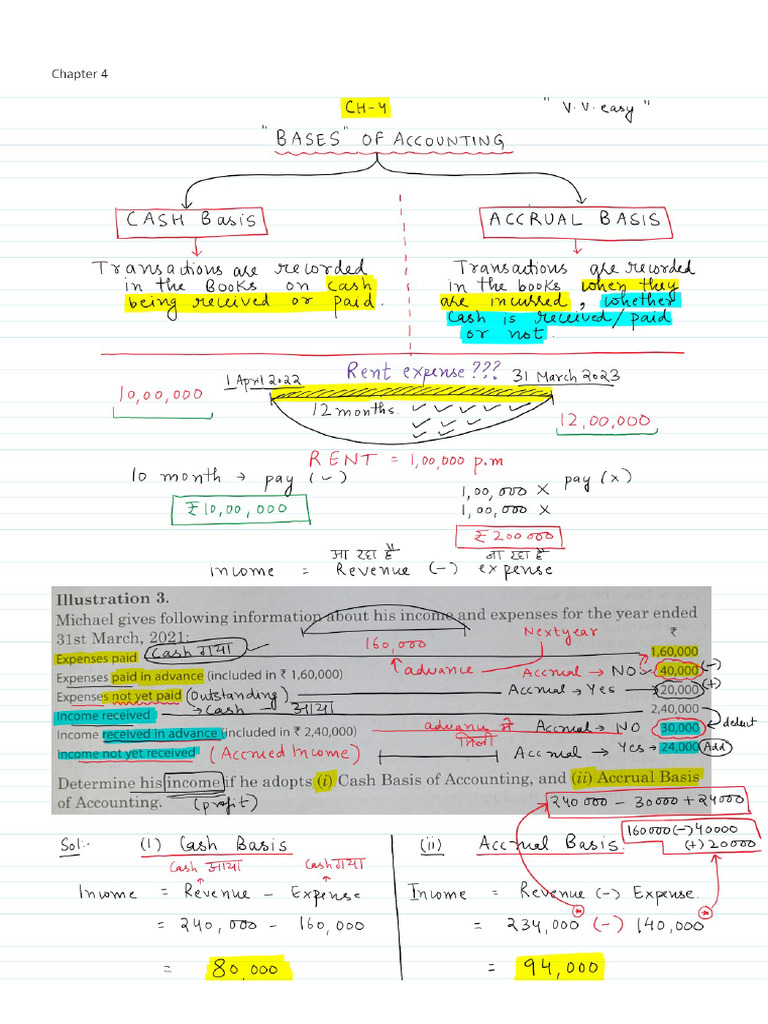 Chapter 4
CH-4 " V.V. easy "
"BASES" OF ACCOUNTING
CASH Basis
ACCRUAL BASIS
Transactions are recorded
in the Books on cash
being received or paid.
Transactions are recorded
in the books when they
are incurred, whether
cash is received/paid
or not.
Rent expense???
1 April 2022 31 March 2023
10,00,000
12 months.
12,00,000
RENT = 1,00,000 p.m
10 month → pay (✓)
₹10,00,000
pay (x)
1,00,000 X
1,00,000 X
₹ 200000
आ रहा है जा रहा है
income = Revenue (-) expense
Illustration 3.
Michael gives following information about his income and expenses for the year ended
31st March, 2021: ₹
Expenses paid Cash गया 160,000 Next year 1,60,000
Expenses paid in advance (included in ₹ 1,60,000) advance Accrual → NO 40,000 (-)
Expenses not yet paid (Outstanding) Accrual → Yes 20,000 (+)
Income received → Cash आया 2,40,000
Income received in advance (included in ₹ 2,40,000) advance में मिली Accrual → NO 30,000 → deduct
Income not yet received (Accrued Income) Accrual → Yes → 24,000 Add
Determine his income if he adopts (i) Cash Basis of Accounting, and (ii) Accrual Basis
of Accounting. (profit)
240000 - 30000 + 24000
160000 (-) 40000
(+) 20000
Sol:- (1) Cash Basis
Cash आया Cash गया
Income = Revenue - Expense
= 240,000 - 160,000
= 80,000
(ii) Accrual Basis.
Income = Revenue (-) Expense.
= 234,000 (-) 140,000
= 94,000